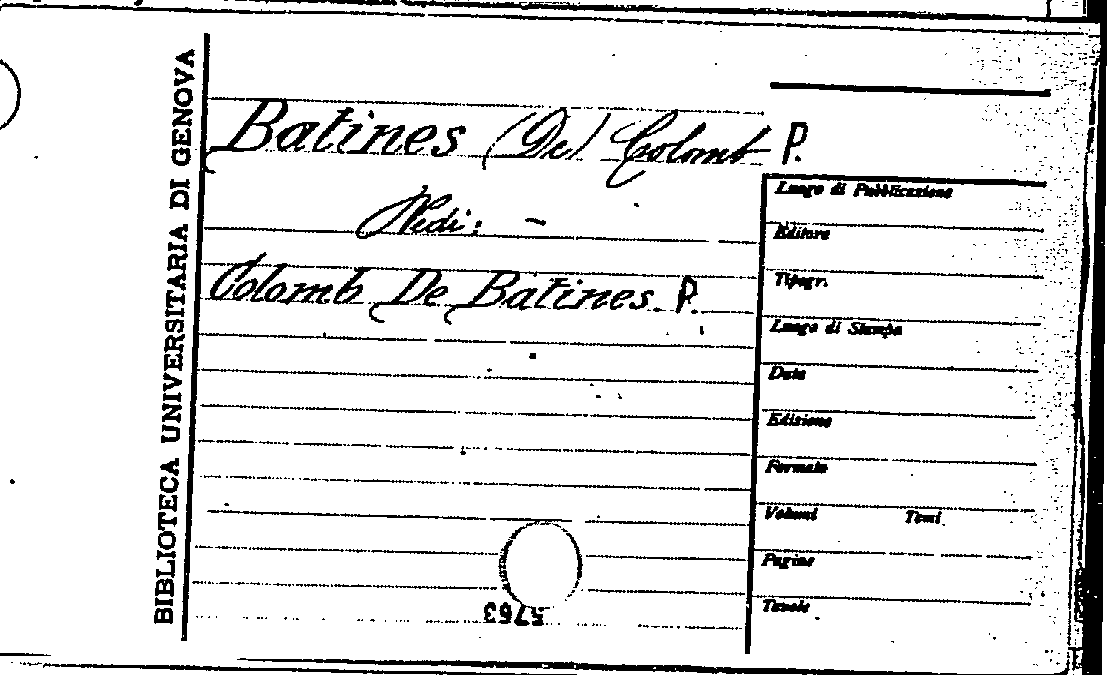 BIBLIOTECA UNIVERSITARIA DI GENOVA
Batines (De) Colomb P.
Vedi: -
Colomb De Batines. P.
Luogo di Pubblicazione
Editore
Tipogr.
Luogo di Stampa
Data
Edizione
Formato
Volumi Tomi
Pagine
Tavole
5763